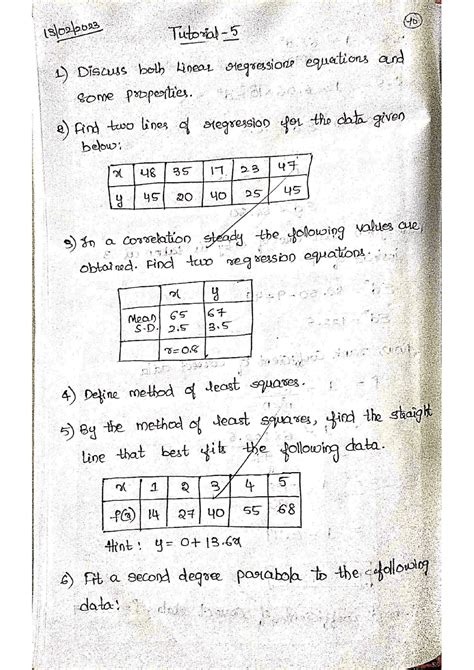 13/02/2023
Tutorial-5
40
1) Discuss both linear regressions equations and
some properties.
2) Find two lines of regression for the data given
below:
x 48 35 17 23 47
y 45 20 40 25 45
3) In a correlation steady the following values are
obtained. Find two regression equations.
x y
Mean 65 67
S.D. 2.5 3.5
r=0.8
4) Define method of least squares.
5) By the method of least squares, find the straight
line that best fits the following data.
x 1 2 3 4 5
f(x) 14 27 40 55 68
Hint: y = 0+13.6x
6) Fit a second degree parabola to the following
data: